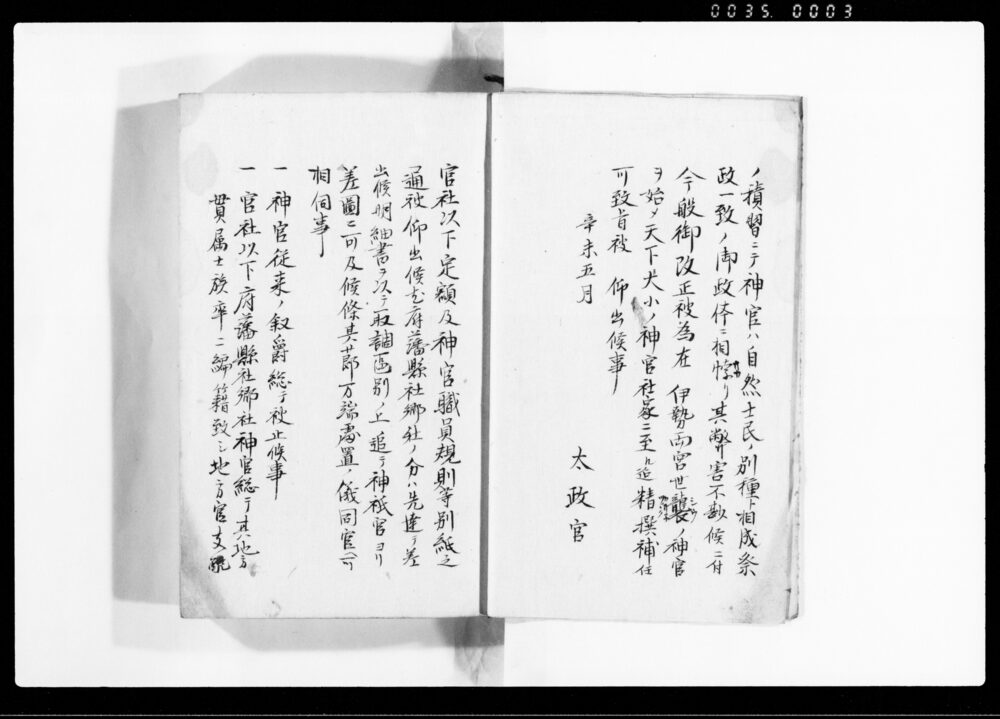 0035. 0003
ノ積習ニテ神官ハ自然士民ノ別種ト相成祭
政一致ノ御政体ニ相悖り其弊害不尠候ニ付
今般御改正被為在 伊勢両宮世襲ノ神官
ヲ始メ天下大小ノ神官社家ニ至ル迄精撰補任
可致旨被 仰出候事
辛未五月
太政官
官社以下定額及神官職員規則等別紙之
通被 仰出候尤府藩縣社郷社ノ分ハ先達テ差
出候明細書ヲ以テ取調区別ノ上追テ神祇官ヨリ
差圖ニ可及候條其節万端處置ノ儀同官ヘ可
相伺事
一 神官従来ノ叙爵総テ被止候事
一 官社以下府藩縣社郷社神官総テ其地方
貫属士族卒ニ編籍致シ地方官支配